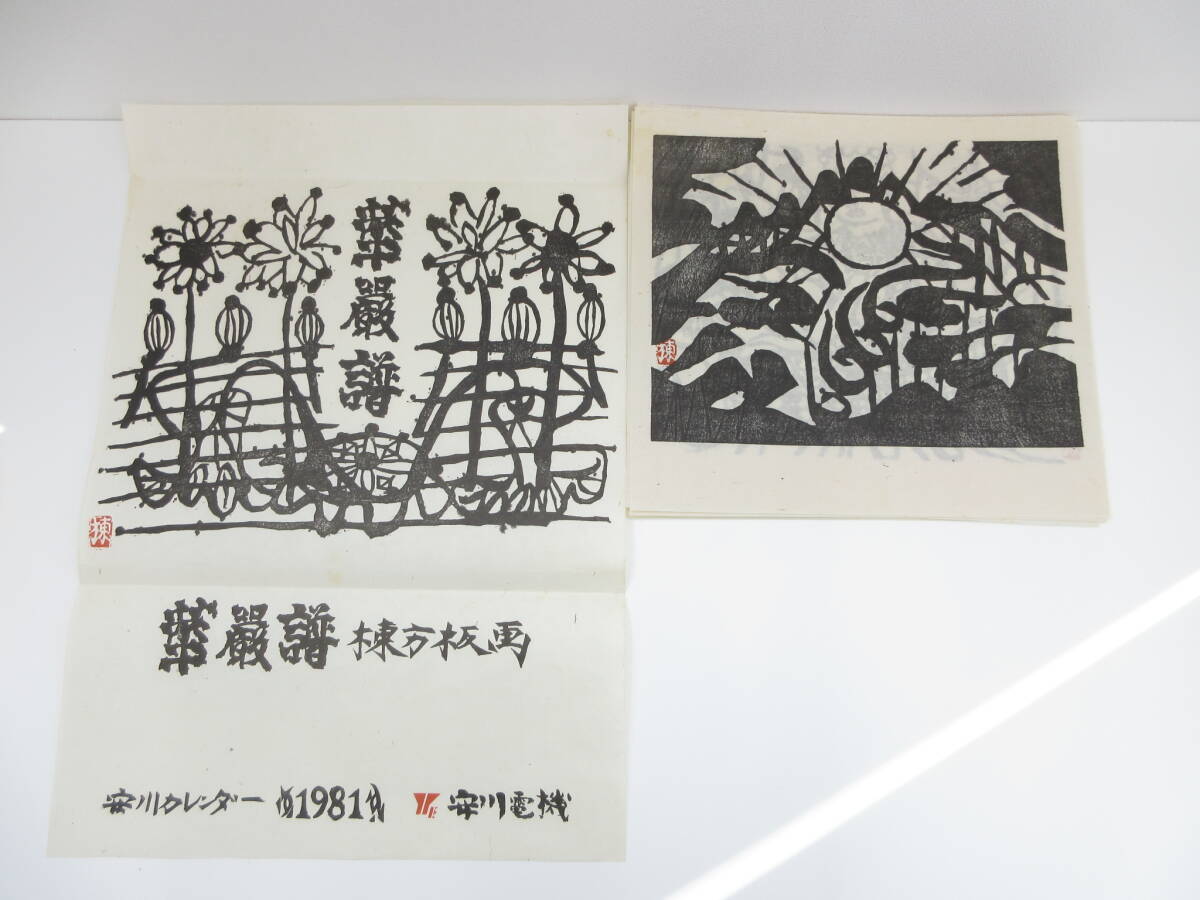 華嚴譜
棟
華嚴譜 棟方板画
安川カレンダー 1981 安川電機
棟